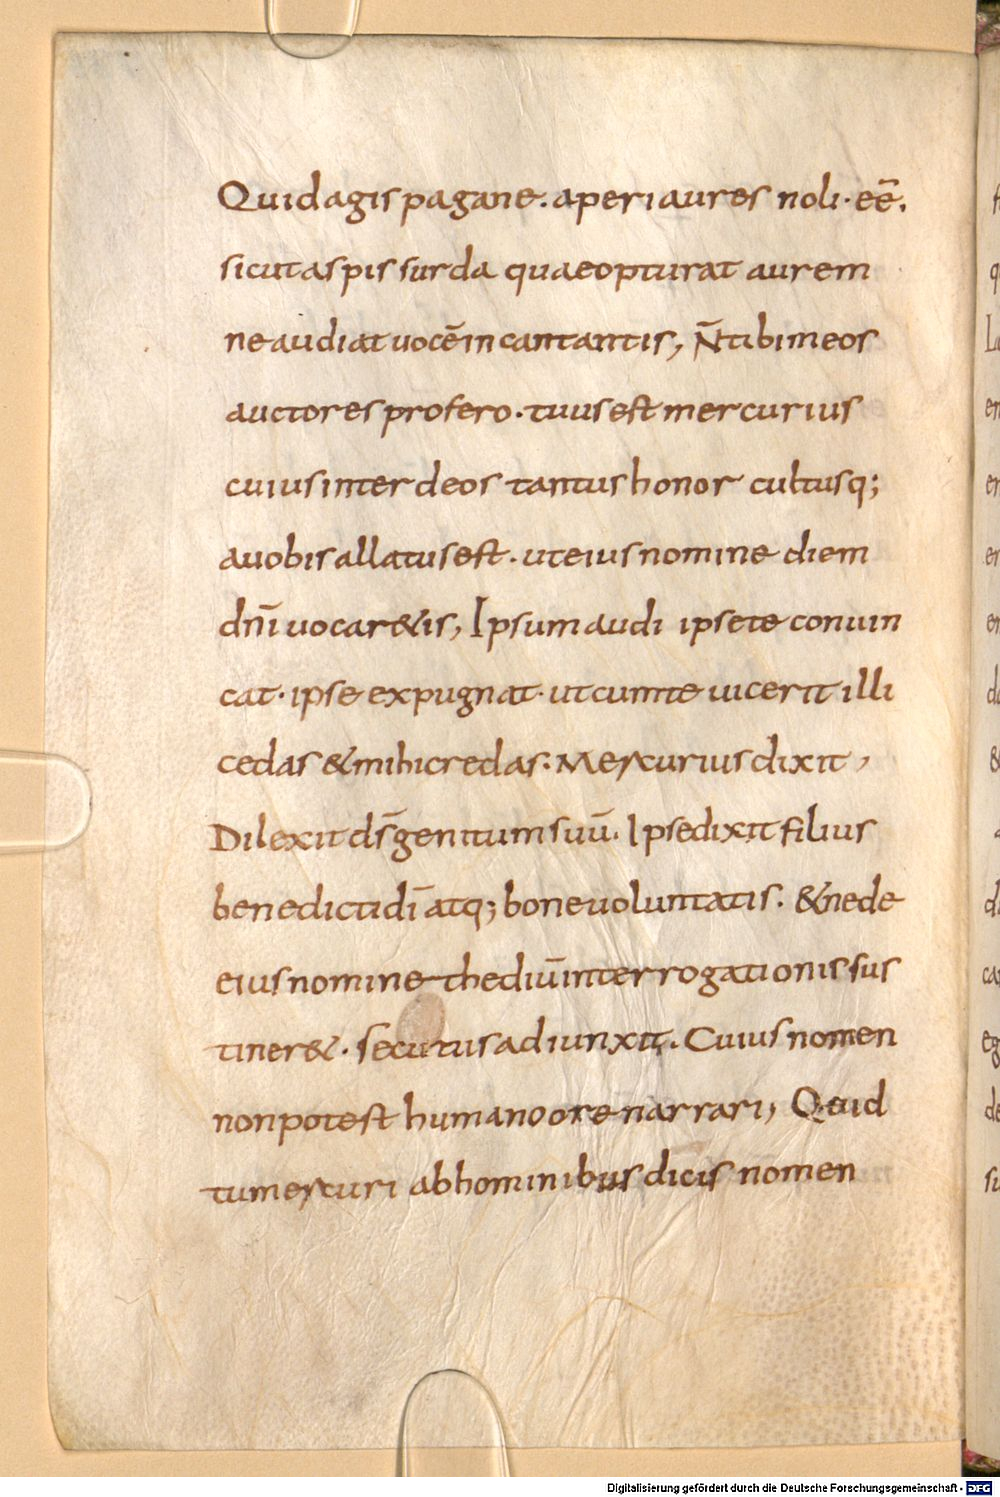 Quid agis pagane. aperi aures noli. eē.
sicut aspis surda quae opturat aurem
ne audiat vocē incantantis, N̄ tibi meos
auctores profero. tuus est mercurius
cuius inter deos tantus honor cultusq;
a vobis allatus est. ut eius nomine diem
dnī vocar&is, Ipsum audi ipse te conuin
cat. ipse expugnat. ut cum te uicerit illi
cedas & mihi credas. Mercurius dixit,
Dilexit ds̄ genitum suū. Ipse dixit filius
benedicti dī atq; bone uoluntatis. & ne de
eius nomine thediū interrogationis sus
tiner&. secutus adiunxit. Cuius nomen
non potest humano ore narrari, Quid
tu mercuri ab hominibus dicis nomen
Digitalisierung gefördert durch die Deutsche Forschungsgemeinschaft - DFG